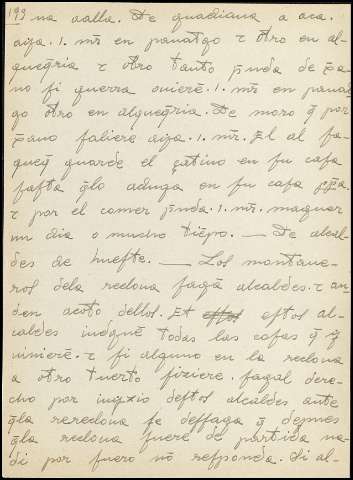 199 na valla. De guadiana a aca.
aya .1. mr̄ en panatgo τ otro en al-
quegria τ otro tanto p̄nda de pa-
no si guerra ouierē .1. mr̄ en panat
go otro en alqueria. De moro q̄ por
p̄ano saliere aya .1. mr̄. El al fa-
queq̄ guarde el catiuo en su casa
fasta q̄lo aduga en su casa
τ por el comer p̄nda .1. mr̄. maguer
un dia o mucho tiēpo. — De alcal-
des de hueste. — Los montane-
ros dela recloua fagā alcaldes. τ an-
den acoto dellos. Et estos al-
caldes
todas las cosas q̄ y
uinierē. τ si alguno en la recloua
a otro tuerto fiziere. fagal dere-
cho por iuyzio destos alcaldes ante
q̄la recloua se deffaga q̄ depues
q̄la recloua fuere de partida na-
di por fuero nō responda. Si al-